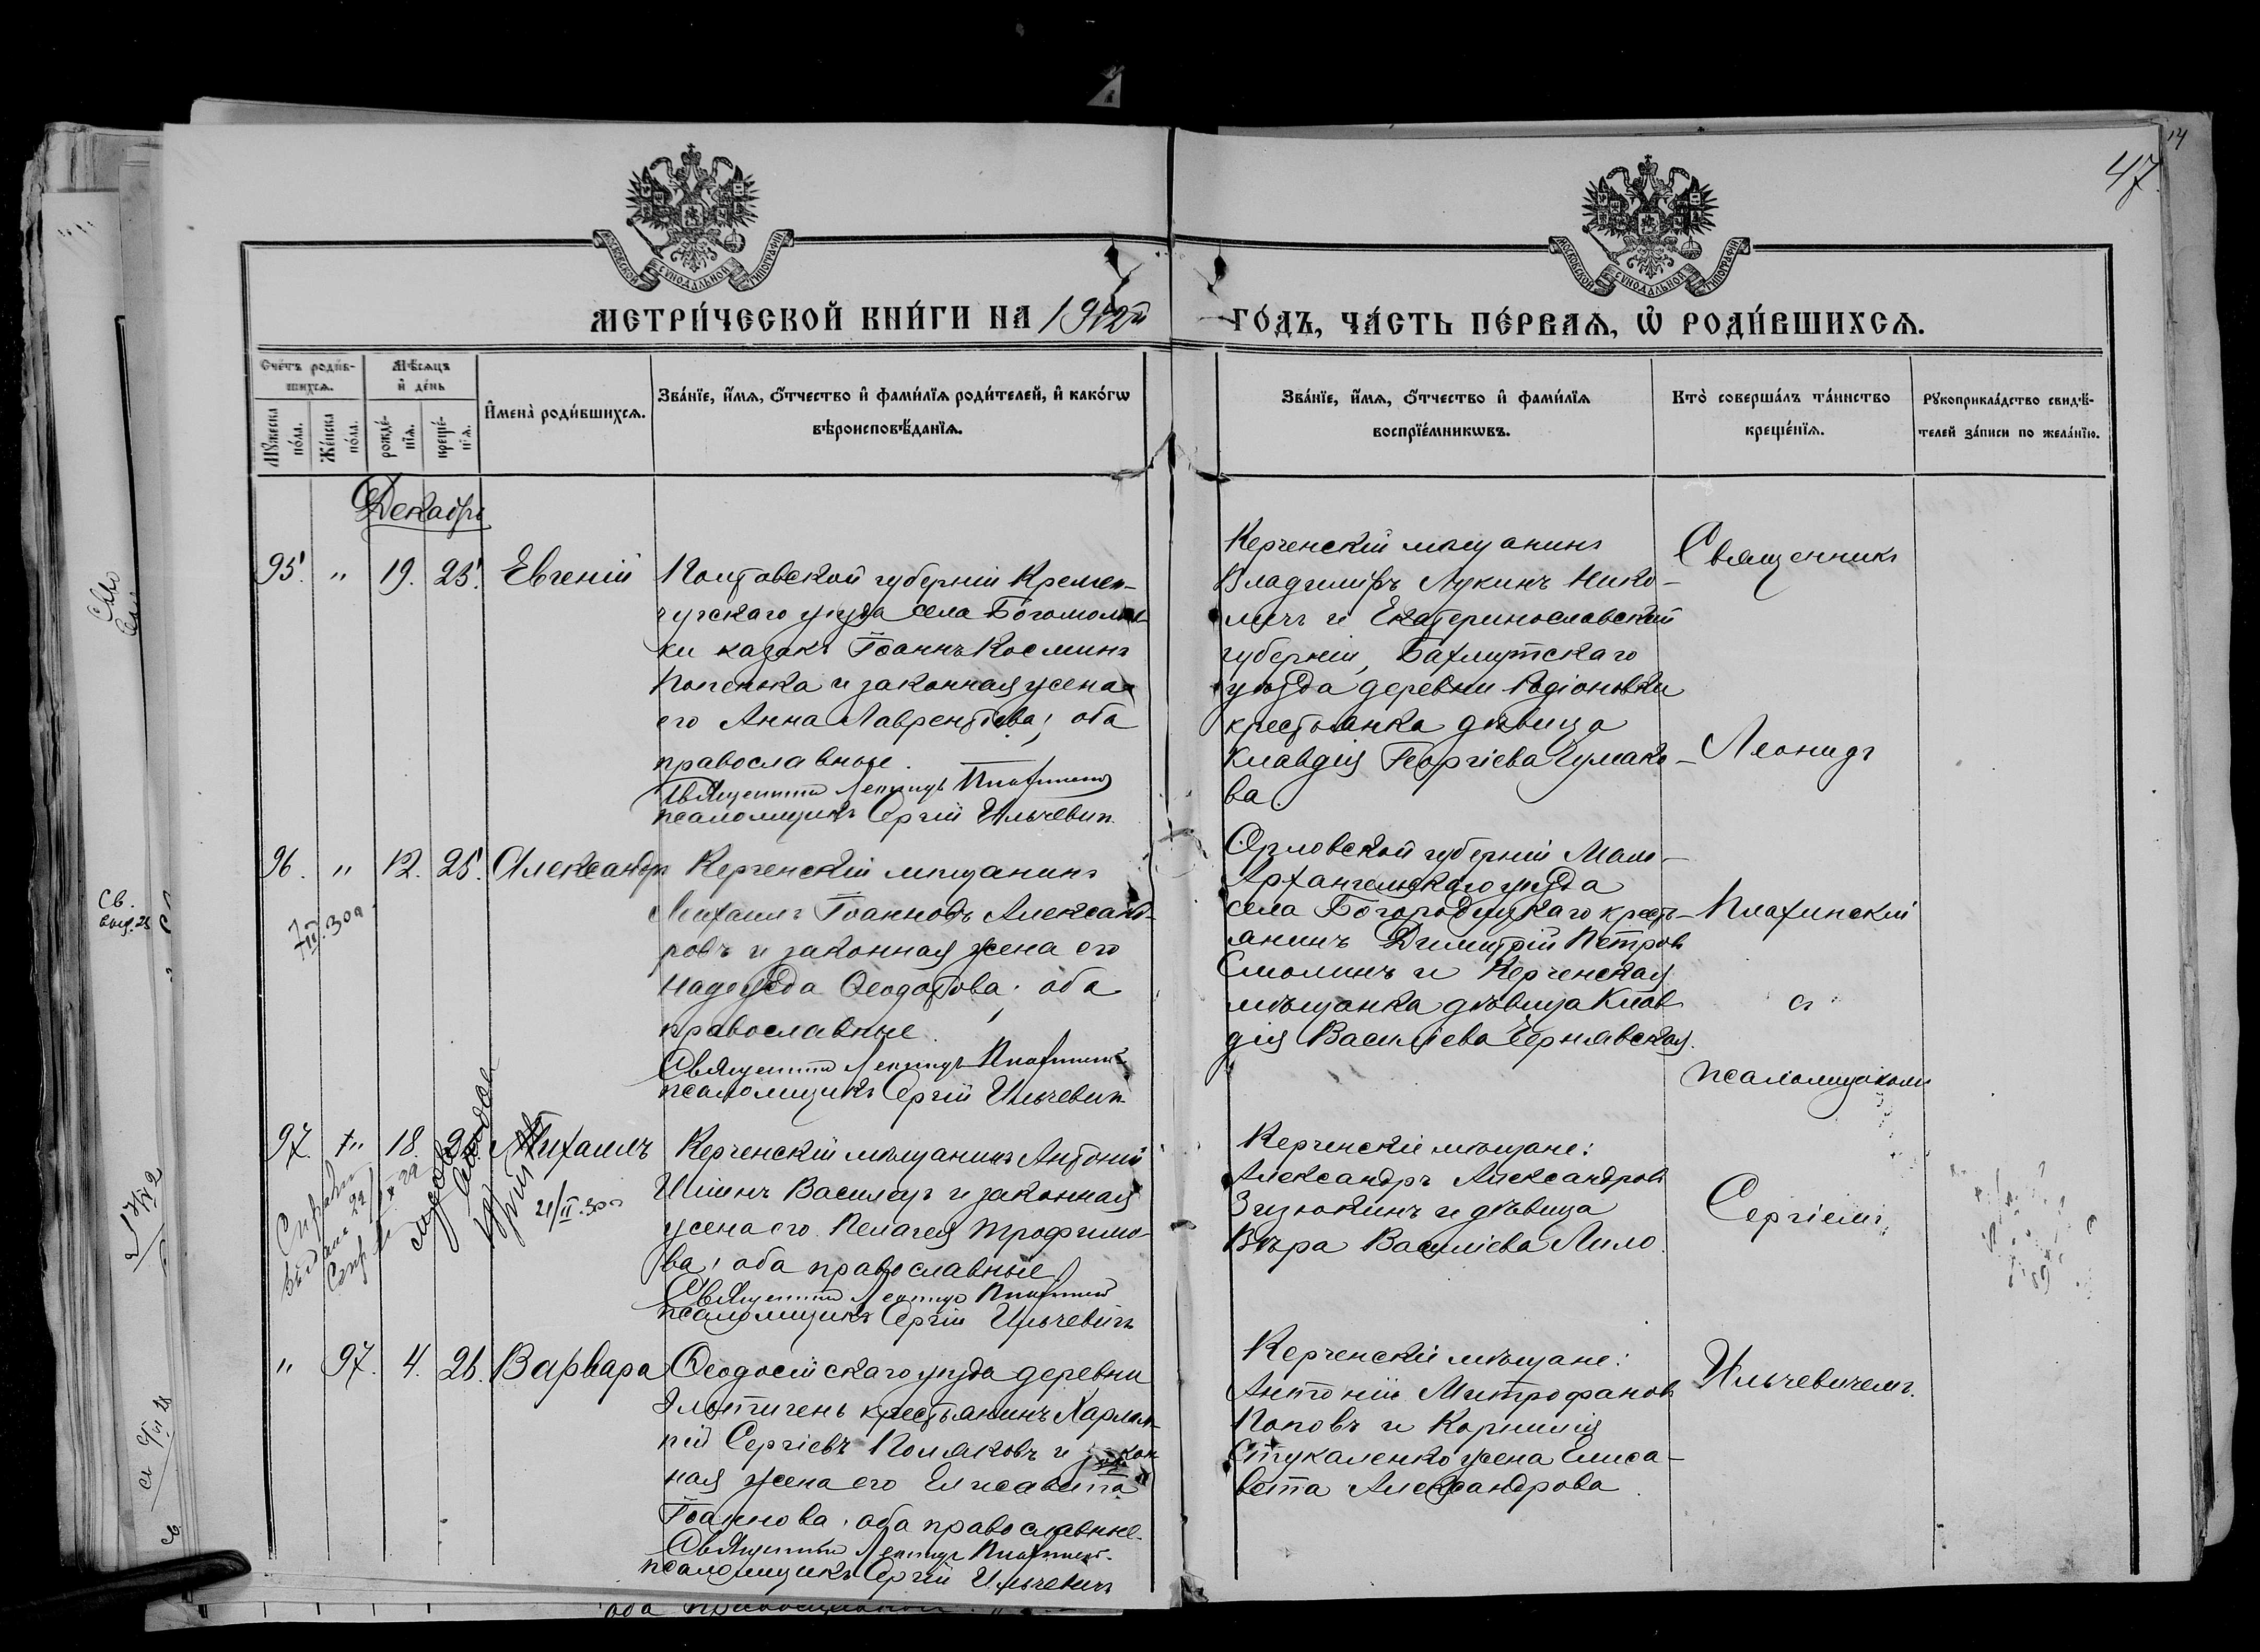 47.
14
МОСКОВСКОЙ СѴНОДАЛЬНОЙ ТИПОГРАФІИ
МОСКОВСКОЙ СѴНОДАЛЬНОЙ ТИПОГРАФІИ
МЕТРИ́ЧЕСКОЙ КНИ́ГИ НА 1912й ГО́ДЪ, ЧА́СТЬ ПЕ́РВАѦ, Ѡ҆ РОДИ́ВШИХСѦ.
Счéтъ роди́в-
шихсѧ.
Мꙋ́жеска по́ла.
Же́нска по́ла.
Мѣ́сѧцъ
и҆ де́нь
рожде́-
нїѧ.
креще́-
нїѧ.
И҆мена̀ роди́вшихсѧ.
Зва́нїе, и҆́мѧ, ѻ҆́тчество и҆ фами́лїѧ роди́телей, и҆ како́гѡ
вѣроисповѣ́данїѧ.
Зва́нїе, и҆́мѧ, ѻ҆́тчество и҆ фами́лїѧ
воспрїе́мникѡвъ.
Кто̀ соверша́лъ та́инство
креще́нїѧ.
Рꙋкоприкла́дство свидѣ́-
телей за́писи по жела́нїю.
Декабрь
95. " 19. 25. Евгеній
Полтавской губерніи Кремен-
чугскаго уѣзда села Богомолов-
ки казакъ Іоаннъ Косминъ
Попенка и законная жена
его Анна Лаврентіева; оба
православные.
Священникъ Леонидъ Плахинскій
псаломщикъ Сергій Ильчевич
Керченскій мѣщанинъ
Владиміръ Лукинъ Нико-
личъ и Екатеринославской
губерніи, Бахмутскаго
уѣзда деревни Родіоновки
крестьянка дѣвица
Клавдія Георгіева Чумако-
ва.
Священникъ
Леонидъ
96. " 12. 25. Александръ
Керченскій мѣщанинъ
Михаилъ Іоанновъ Александ-
ровъ и законная жена его
Надежда Ѳеодотова; оба
православные.
Священникъ Леонидъ Плахинск.
псаломщикъ Сергій Ильчевич
Орловской губерніи Мало-
Архангельскаго уѣзда
села Богородицкаго кресть-
янинъ Димитрій Петров
Смолинъ и Керченская
мѣщанка дѣвица Клав
дія Василіева Чернявская.
Плахинскій
съ
псаломщикомъ
97. " 18. Михаилъ
21/II.30 г
Керченскій мѣщанинъ Антоній
Василецъ и законная
жена его Пелагея Трофимо-
ва; оба православные.
Священникъ Леонидъ Плахинскій
псаломщикъ Сергій Ильчевичъ
Керченскіе мѣщане:
Александръ Александров
Зизюкинъ и дѣвица
Вѣра Василіева Лило.
Сергіемъ
" 97. 4. 26. Варвара
Ѳеодосійскаго уѣзда деревни
Элтигень крестьянинъ Харлам-
пій Сергіевъ Поляковъ и закон
ная жена его Елисавета
Іоаннова; оба православные.
Священникъ Леонидъ Плахинск.
псаломщикъ Сергій Ильчевичъ
Керченскіе мѣщане:
Антоній Митрофанов
Поповъ и Корнилія
Стукаленко жена Елиса-
вета Александрова.
Ильчевичемъ.